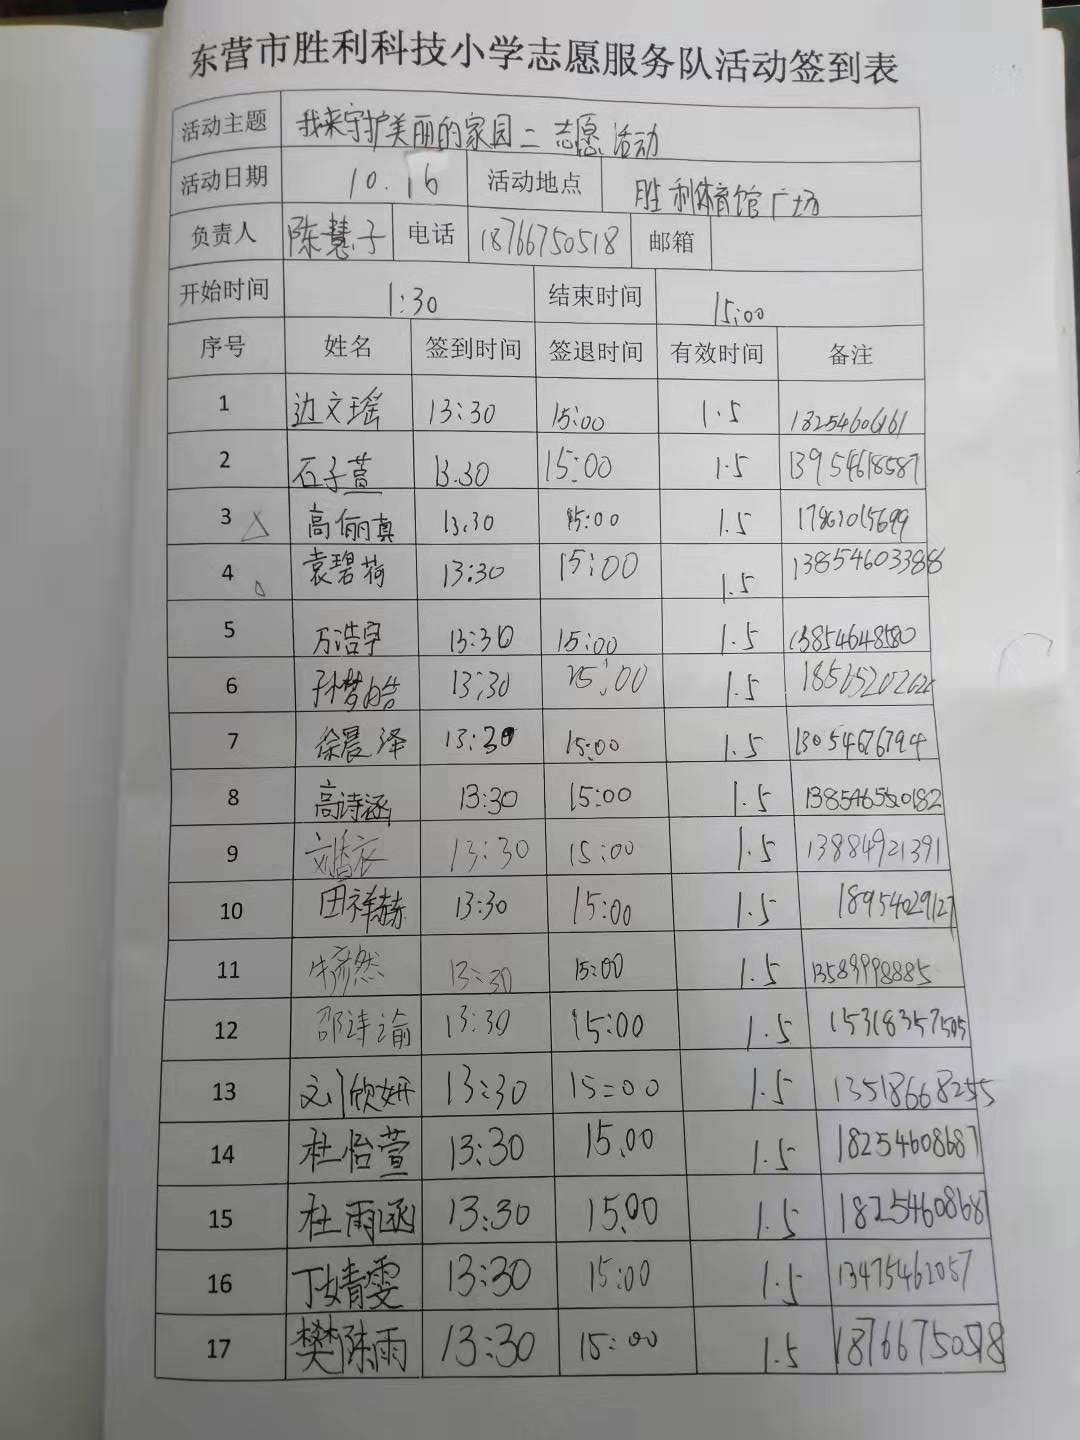 东营市胜利科技小学志愿服务队活动签到表
活动主题 我来守护美丽的家园二 志愿活动
活动日期 10.16 活动地点 胜利体育馆广场
负责人 陈慧子 电话 18766750518 邮箱
开始时间 1:30 结束时间 15:00
序号 姓名 签到时间 签退时间 有效时间 备注
1 边文瑶 13:30 15:00 1.5 18254606161
2 石子萱 13.30 15:00 1.5 13954618587
3 高俪真 13:30 15:00 1.5 17862015699
4 袁碧荷 13:30 15:00 1.5 13854603388
5 万浩宇 13:30 15:00 1.5 13854648580
6 孙梦皓 13:30 15:00 1.5
7 徐晨泽 13:30 15:00 1.5 13054676794
8 高诗涵 13:30 15:00 1.5
9 刘香衣 13:30 15:00 1.5 13884921391
10 田祥赫 13:30 15:00 1.5 18954029127
11 牛彦然 13:30 15:00 1.5 13589998885
12 邵诗渝 13:30 15:00 1.5 15318357505
13 刘欣妍 13:30 15:00 1.5 13518668255
14 杜怡萱 13:30 15.00 1.5 18254608687
15 杜雨涵 13:30 15.00 1.5 18254608687
16 丁婧雯 13:30 15:00 1.5 13475462057
17 樊陈雨 13:30 15:00 1.5 18766750518